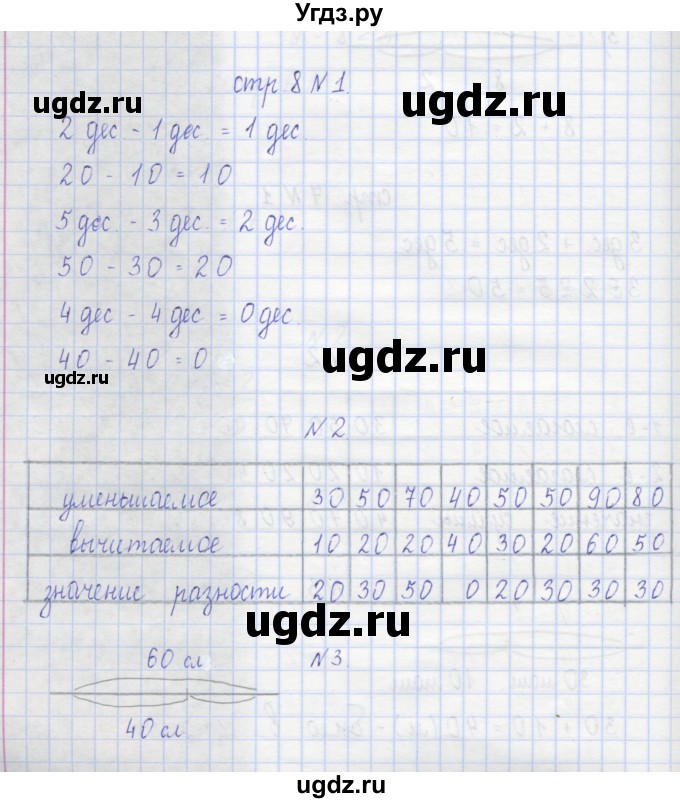 Угдз.ру
стр 8 N 1.
ugdz.ru
2 дес - 1 дес. = 1 дес.
ugdz.ru
20 - 10 = 10
5 дес. - 3 дес. = 2 дес.
50 - 30 = 20
4 дес - 4 дес = 0 дес.
ugdz.ru
40 - 40 = 0
ugdz.ru
N 2
уменьшаемое 30 50 70 40 50 50 90 80
вычитаемое 10 20 20 40 30 20 60 50
значение разности 20 30 50 0 20 30 30 30
ugdz.ru
60 сл N 3.
40 сл
ugdz.ru
ugdz.ru